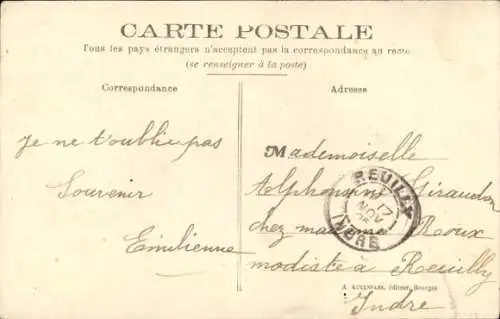 CARTE POSTALE
Tous les pays étrangers n'acceptent pas la correspondance au recto
(se renseigner à la poste)
Correspondance
Adresse
Je ne t'oublie pas
Souvenir
Emilienne
Mademoiselle
Alphonsine Giraudon
chez madame Roux
modiste à Reuilly
Indre
REUILLY
17
NOV
INDRE
éditeur, Bourges